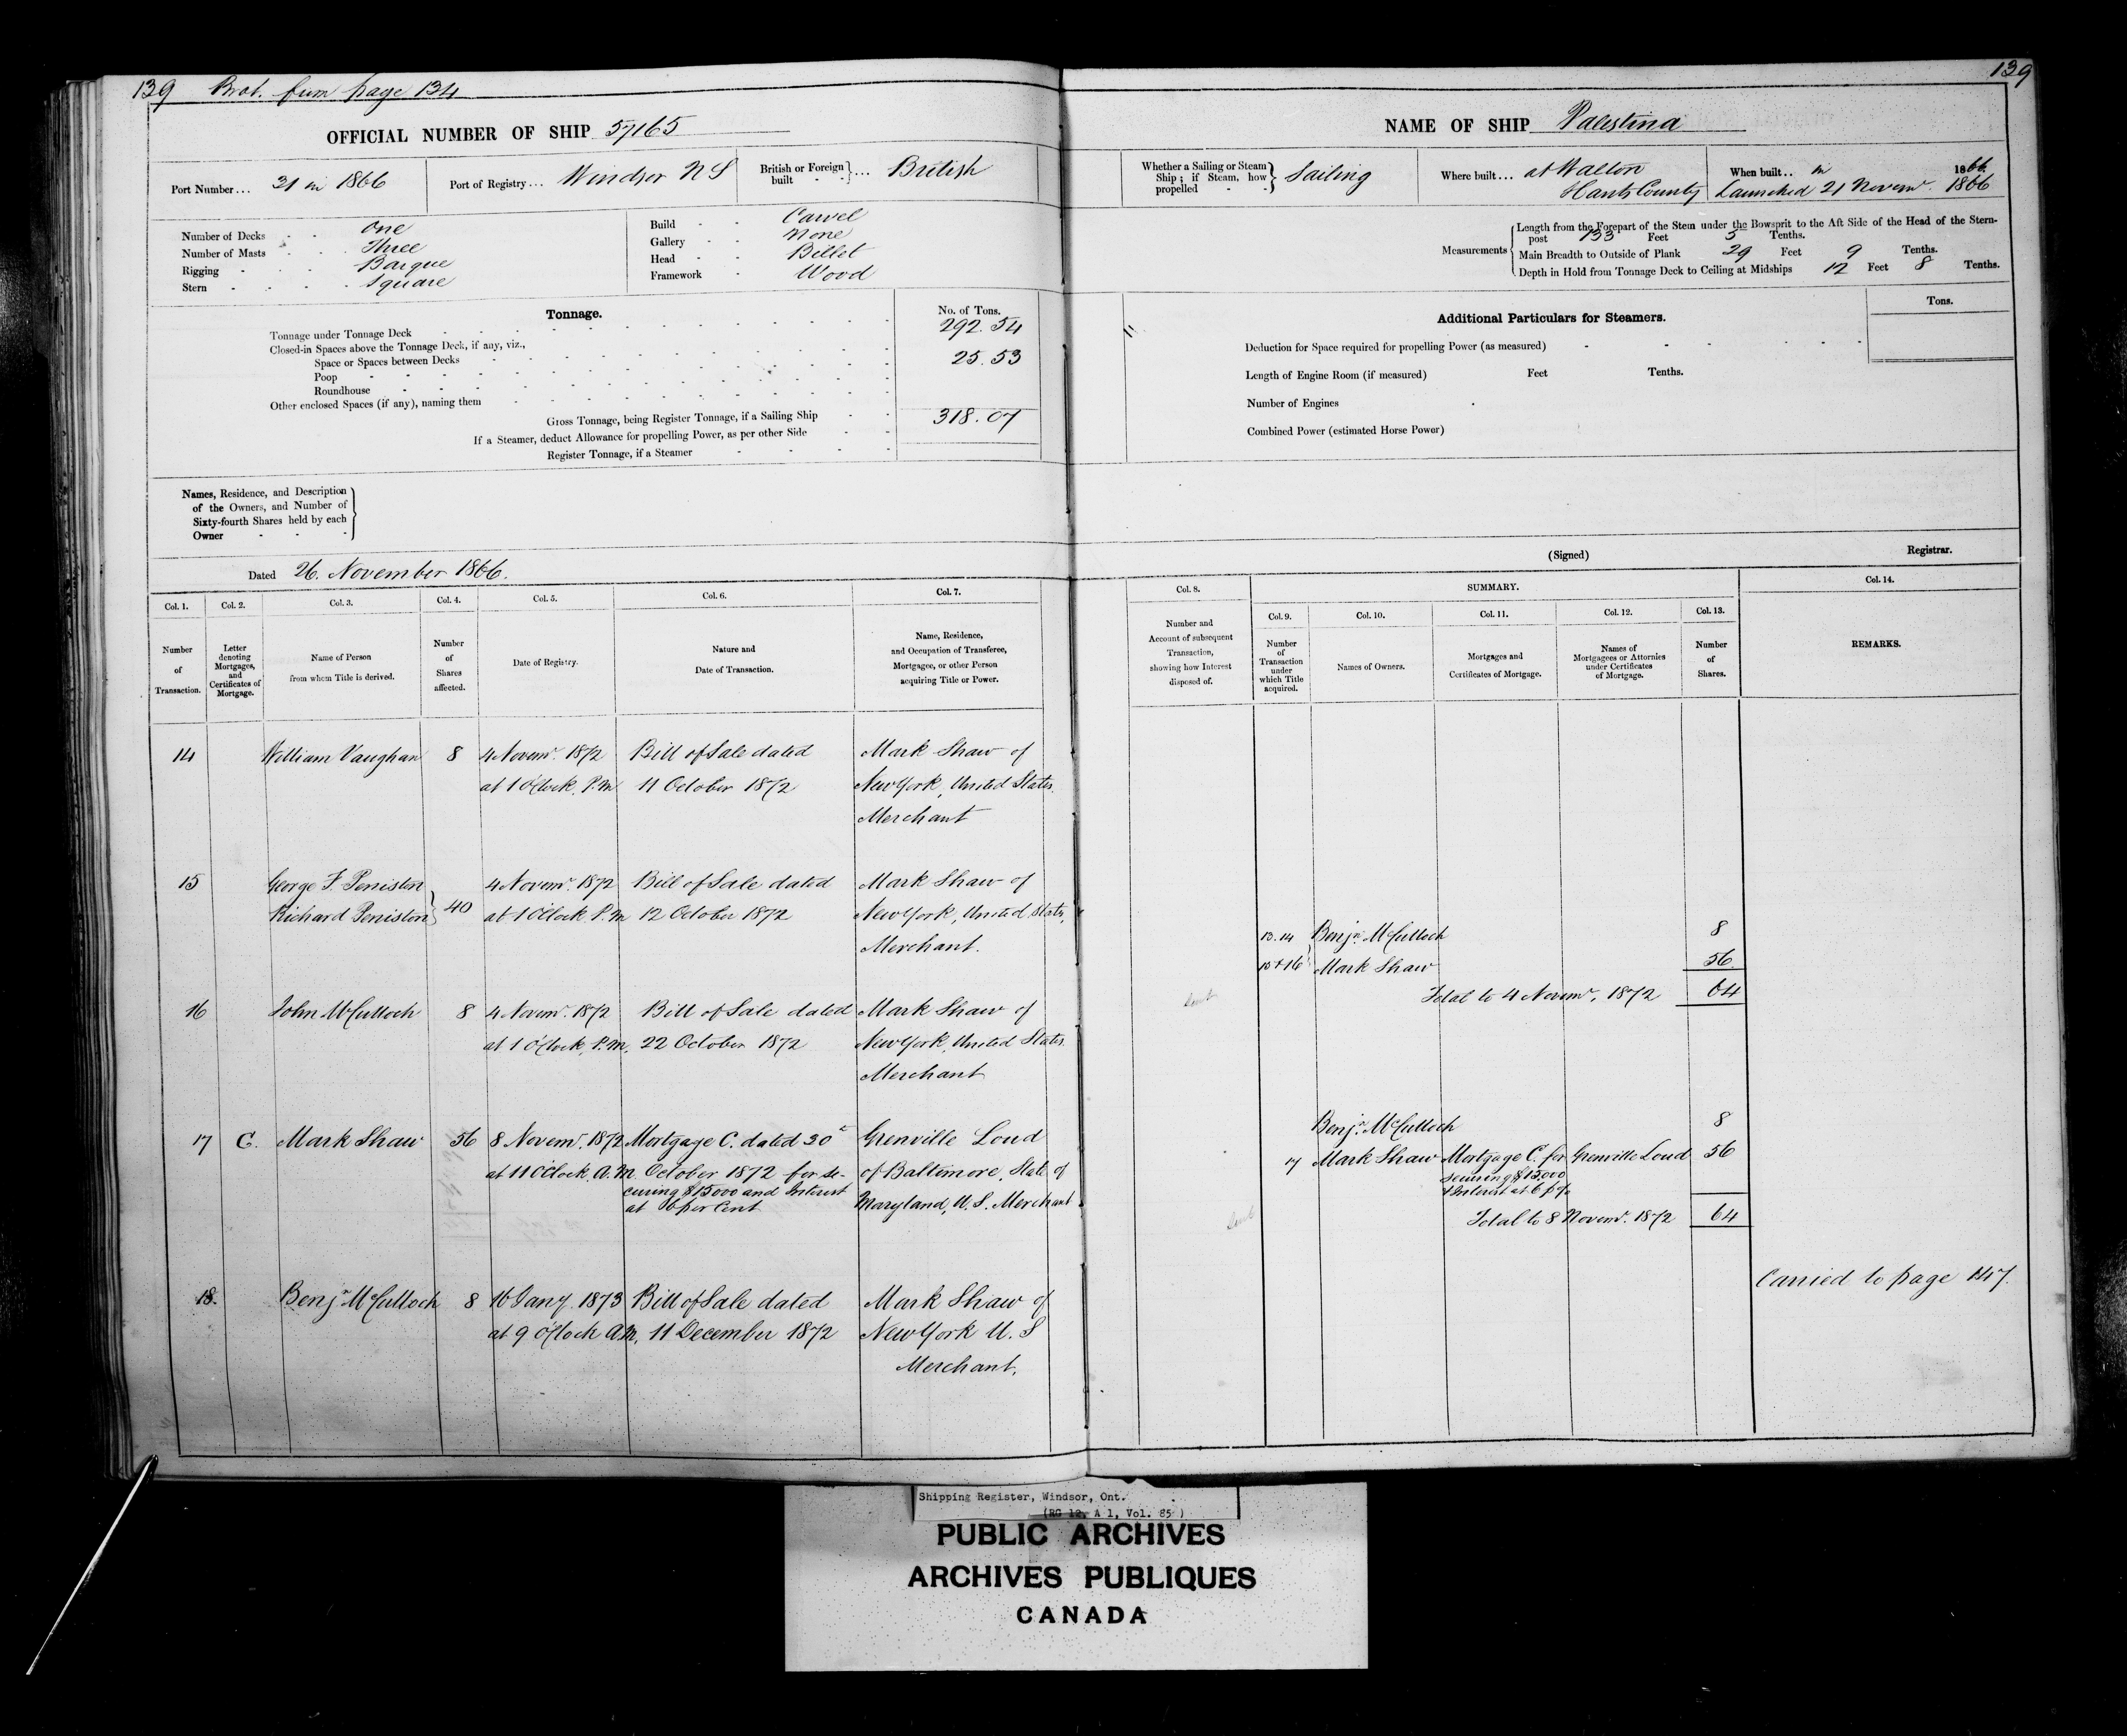 139 Brot. from page 134
139
OFFICIAL NUMBER OF SHIP 57165
NAME OF SHIP Palestina
Port Number... 31 in 1866
Port of Registry... Windsor N S
British or Foreign built } ... British
Whether a Sailing or Steam Ship; if Steam, how propelled } Sailing
Where built... at Walton
Hants County
When built.. in 1866.
Launched 21 Novemr. 1866
Number of Decks One
Number of Masts Three
Rigging Barque
Stern Square
Build Carvel
Gallery None
Head Billet
Framework Wood
Measurements
Length from the Forepart of the Stem under the Bowsprit to the Aft Side of the Head of the Stern-
post 133 Feet 5 Tenths.
Main Breadth to Outside of Plank 29 Feet 9 Tenths.
Depth in Hold from Tonnage Deck to Ceiling at Midships 12 Feet 8 Tenths.
Tonnage.
No. of Tons.
Tonnage under Tonnage Deck 292.54
Closed-in Spaces above the Tonnage Deck, if any, viz.,
Space or Spaces between Decks 25.53
Poop
Roundhouse
Other enclosed Spaces (if any), naming them
Gross Tonnage, being Register Tonnage, if a Sailing Ship 318.07
If a Steamer, deduct Allowance for propelling Power, as per other Side
Register Tonnage, if a Steamer
Additional Particulars for Steamers.
Tons.
Deduction for Space required for propelling Power (as measured)
Length of Engine Room (if measured) Feet Tenths.
Number of Engines
Combined Power (estimated Horse Power)
Names, Residence, and Description
of the Owners, and Number of
Sixty-fourth Shares held by each
Owner
Dated 26. November 1866.
(Signed) Registrar.
Col. 1. Col. 2. Col. 3. Col. 4. Col. 5. Col. 6. Col. 7.
Number of Transaction.
Letter denoting Mortgages, and Certificates of Mortgage.
Name of Person from whom Title is derived.
Number of Shares affected.
Date of Registry.
Nature and Date of Transaction.
Name, Residence, and Occupation of Transferee, Mortgagee, or other Person acquiring Title or Power.
Col. 8. SUMMARY. Col. 14.
Col. 9. Col. 10. Col. 11. Col. 12. Col. 13.
Number and Account of subsequent Transaction, showing how Interest disposed of.
Number of Transaction under which Title acquired.
Names of Owners.
Mortgages and Certificates of Mortgage.
Names of Mortgagees or Attornies under Certificates of Mortgage.
Number of Shares.
REMARKS.
14 William Vaughan 8 4 Novemr. 1872 Bill of Sale dated Mark Shaw of
at 1 O'Clock. P.M 11 October 1872 New York, United States.
Merchant
15 George F. Peniston 4 Novemr. 1872 Bill of Sale dated Mark Shaw of
Richard Peniston } 40 at 1 O'Clock P.M 12 October 1872 New York, United States,
Merchant.
16 John McCulloch 8 4 Novemr. 1872 Bill of Sale dated Mark Shaw of
at 1 O'Clock, P.M, 22 October 1872 New York, United States
Merchant
17 C. Mark Shaw 56 8 Novemr. 1872 Mortgage C. dated 30th Grenville Loud
at 11 O'Clock, A.M October 1872 for se- of Baltimore, State of
curing $15000 and Interest Maryland, U.S. Merchant
at 6 per Cent
18. Benjn McCulloch 8 16 Jany. 1873 Bill of Sale dated Mark Shaw of
at 9 O'Clock A.M, 11 December 1872 New York U.S
Merchant.
13.14 Benjn. McCulloch 8
15+16 } Mark Shaw 56
Total to 4 Novemr. 1872 64
Benjn. McCulloch 8
17 Mark Shaw Mortgage C. for Grenville Loud 56
securing $15000
& Interest at 6 p %
Total to 8 Novemr. 1872 64
Carried to page 147.
Shipping Register, Windsor, Ont.
(RG 12, A 1, Vol. 85)
PUBLIC ARCHIVES
ARCHIVES PUBLIQUES
CANADA